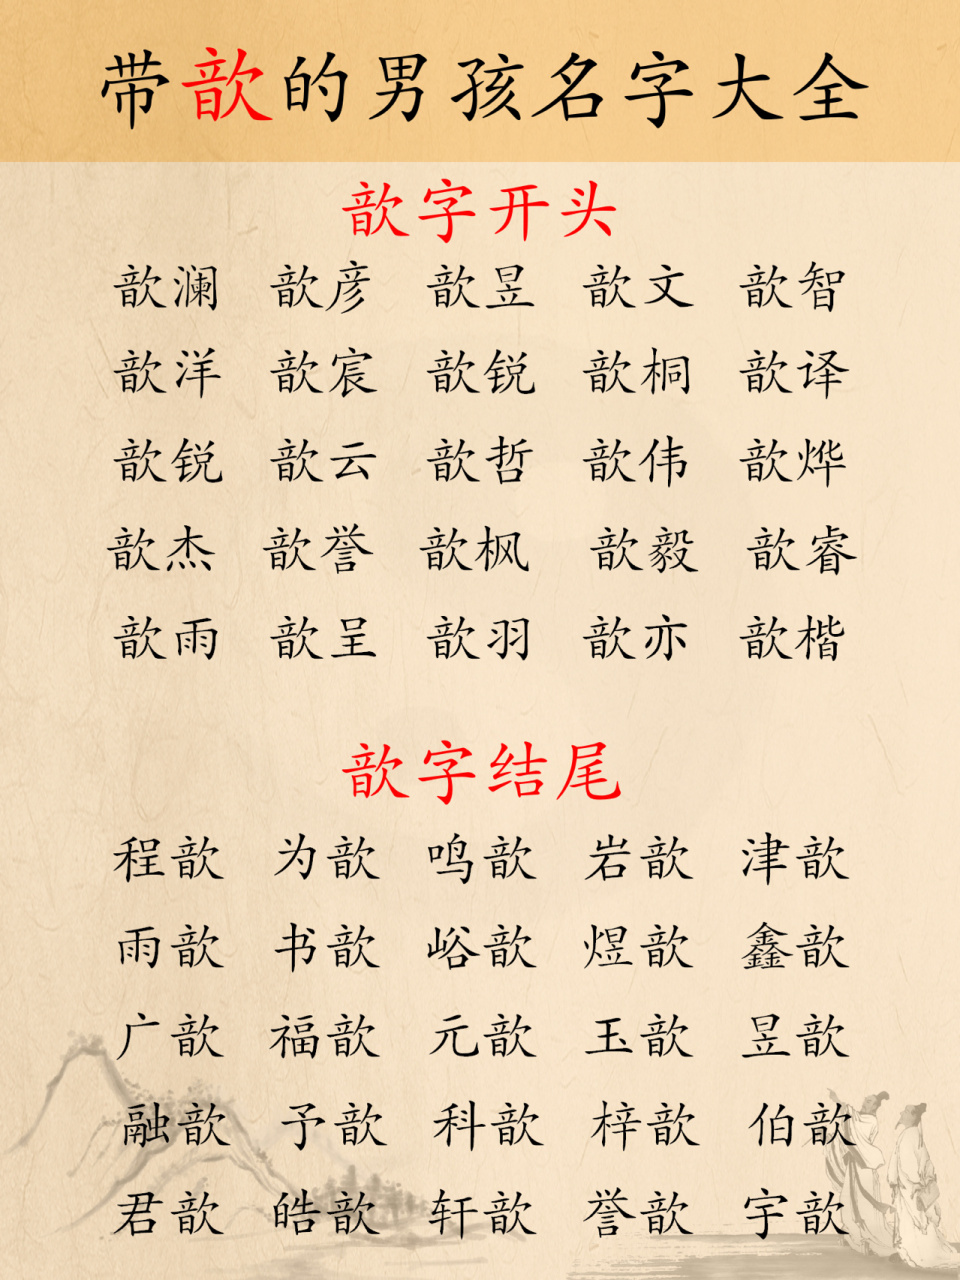 带歆的男孩名字大全
歆字开头
歆澜 歆彦 歆昱 歆文 歆智
歆洋 歆宸 歆锐 歆桐 歆译
歆锐 歆云 歆哲 歆伟 歆烨
歆杰 歆誉 歆枫 歆毅 歆睿
歆雨 歆呈 歆羽 歆亦 歆楷
歆字结尾
程歆 为歆 鸣歆 岩歆 津歆
雨歆 书歆 峪歆 煜歆 鑫歆
广歆 福歆 元歆 玉歆 昱歆
融歆 予歆 科歆 梓歆 伯歆
君歆 皓歆 轩歆 誉歆 宇歆